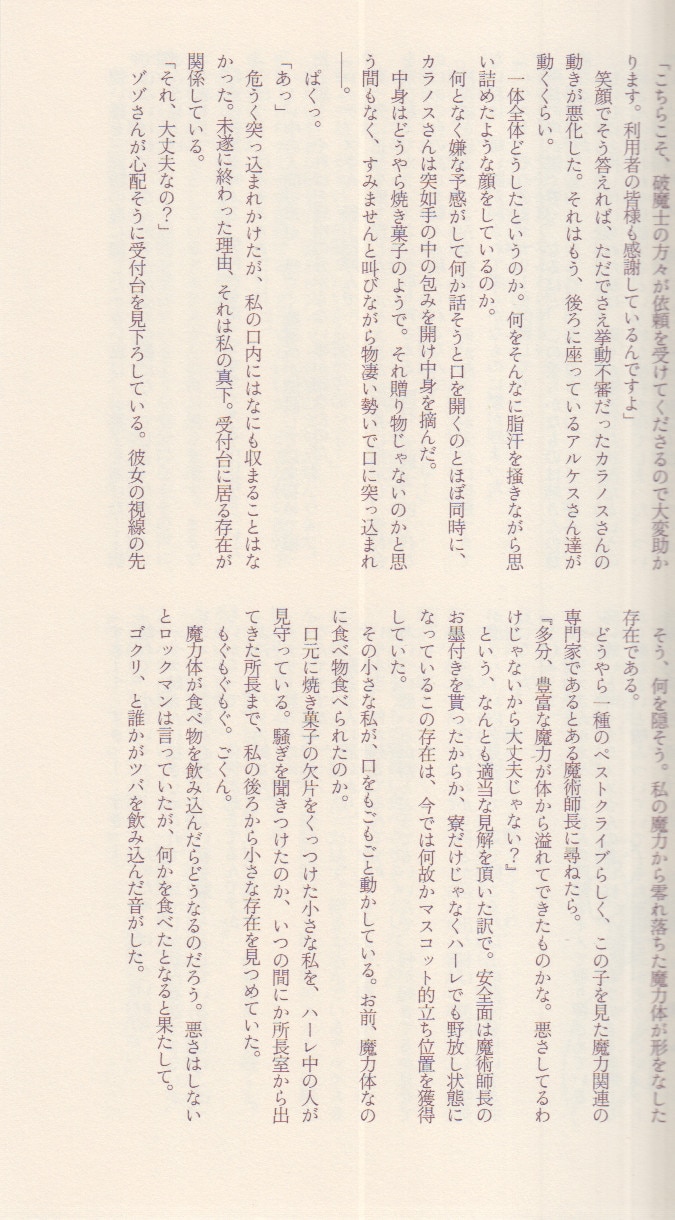 「こちらこそ、破魔士の方々が依頼を受けてくださるので大変助か
ります。利用者の皆様も感謝しているんですよ」
　笑顔でそう答えれば、ただでさえ挙動不審だったカラノスさんの
動きが悪化した。それはもう、後ろに座っているアルケスさん達が
動くくらい。
　一体全体どうしたというのか。何をそんなに脂汗を掻きながら思
い詰めたような顔をしているのか。
　何となく嫌な予感がして何か話そうと口を開くのとほぼ同時に、
カラノスさんは突如手の中の包みを開け中身を摘んだ。
　中身はどうやら焼き菓子のようで。それ贈り物じゃないのかと思
う間もなく、すみませんと叫びながら物凄い勢いで口に突っ込まれ
――。
　ぱくっ。
「あっ」
　危うく突っ込まれかけたが、私の口内にはなにも収まることはな
かった。未遂に終わった理由、それは私の真下。受付台に居る存在が
関係している。
「それ、大丈夫なの？」
　ゾゾさんが心配そうに受付台を見下ろしている。彼女の視線の先
　そう、何を隠そう。私の魔力から零れ落ちた魔力体が形をなした
存在である。
　どうやら一種のペストクライブらしく、この子を見た魔力関連の
専門家であるとある魔術師長に尋ねたら。
『多分、豊富な魔力が体から溢れてできたものかな。悪さしてるわ
けじゃないから大丈夫じゃない？』
　という、なんとも適当な見解を頂いた訳で。安全面は魔術師長の
お墨付きを貰ったからか、寮だけじゃなくハーレでも野放し状態に
なっているこの存在は、今では何故かマスコット的立ち位置を獲得
していた。
　その小さな私が、口をもごもごと動かしている。お前、魔力体なの
に食べ物食べられたのか。
　口元に焼き菓子の欠片をくっつけた小さな私を、ハーレ中の人が
見守っている。騒ぎを聞きつけたのか、いつの間にか所長室から出
てきた所長まで、私の後ろから小さな存在を見つめていた。
　もぐもぐもぐ。ごくん。
　魔力体が食べ物を飲み込んだらどうなるのだろう。悪さはしない
とロックマンは言っていたが、何かを食べたとなると果たして。
　ゴクリ、と誰かがツバを飲み込んだ音がした。